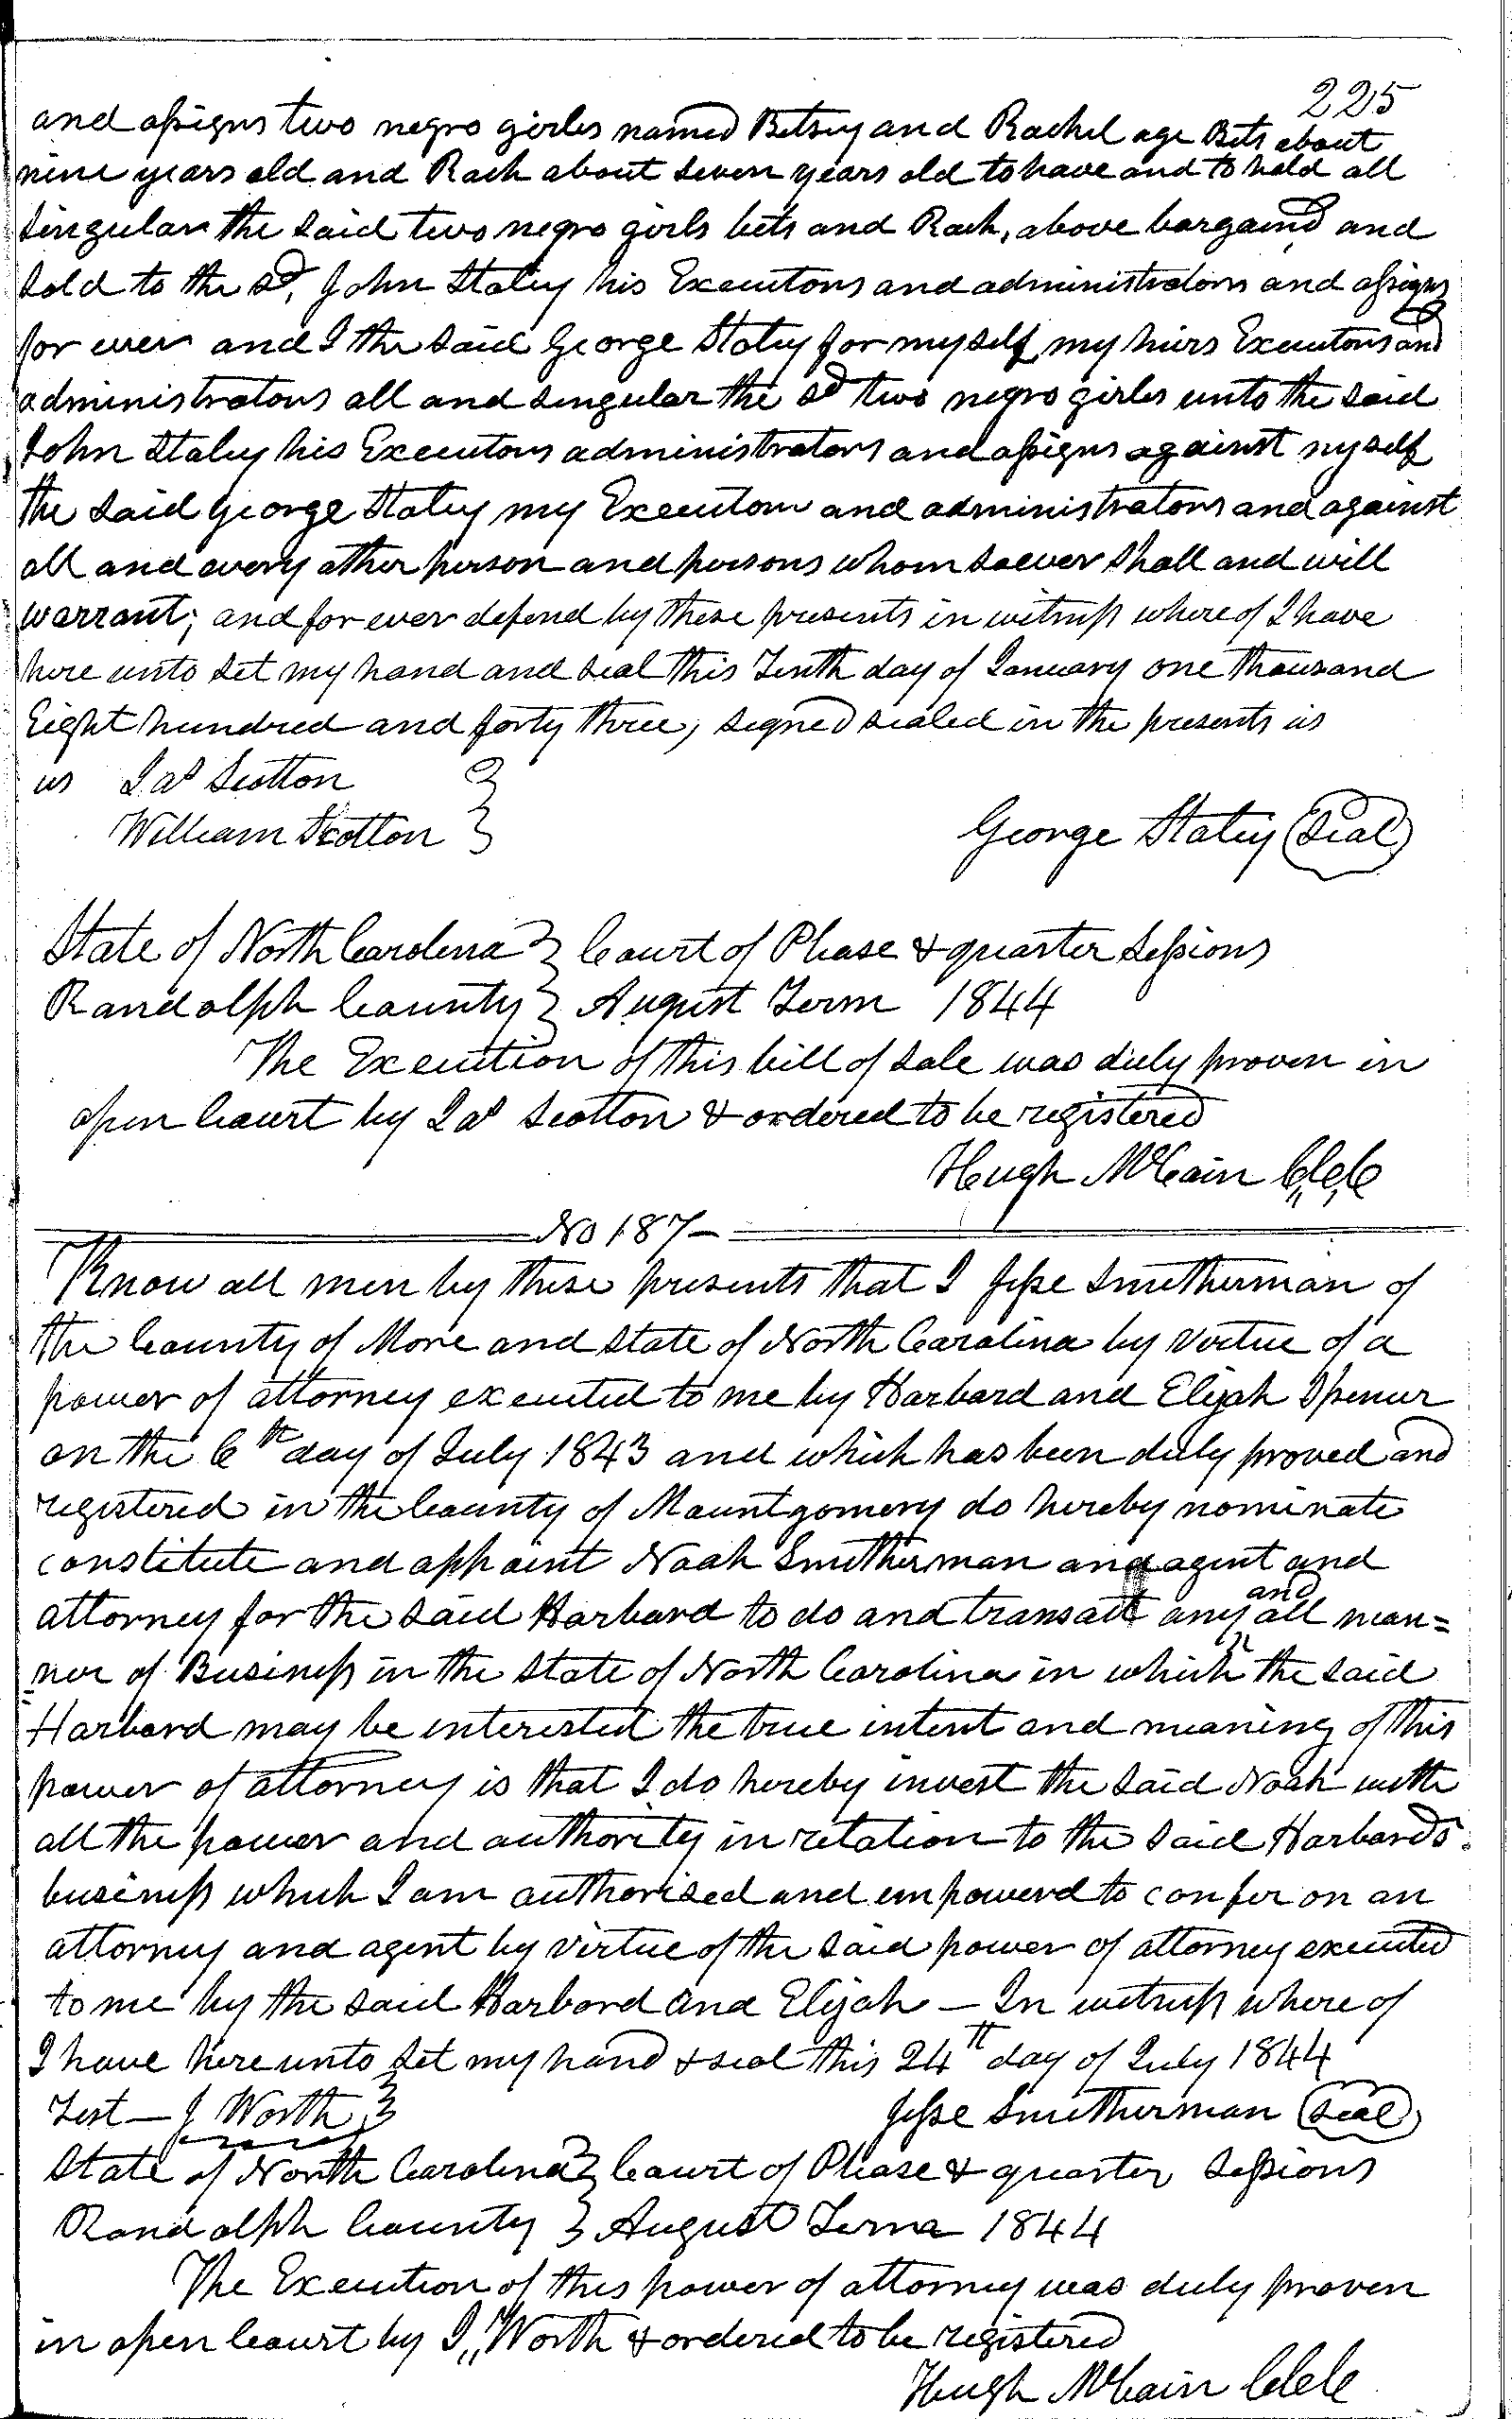 225
and assigns two negro girles named Betsey and Rachel age Bets about
nine years old and Rach about seven years old to have and to hold all
singular the said two negro girls bets and Rach, above bargaind and
sold to the sd, John Staley his Executors and administrators and assigns
for ever and I the said George Staley for myself my hiers Executors and
administrators all and singular the sd two negro girles unto the said
John Staley his Executors administrators and assigns against myself
the said George Staley my Executors and administrators and against
all and every other person and persons whom soever shall and will
warrant; and for ever defend by these presents in witness where of I have
here unto set my hand and seal this Tenth day of January one thousand
Eight hundred and forty three, signed sealed in the presents us
us Jas Scotton }
William Scotton }
George Staley (Seal)
State of North Carolina } Court of Please & quarter Sessions
Randolph County } August Term 1844
The Execution of this bill of sale was duly proven in
open Court by Jas Scotton & ordered to be registered
Hugh McCain C,,C,,C
No 187
Know all men by these presents that I Jesse Smitherman of
the County of More and State of North Carolina by virtue of a
power of attorney executed to me by Harbard and Elijah Spencer
on the 6th day of July 1843 and which has been duly proved and
registered in the County of Mountgomery do hereby nominate
constitute and appoint Noah Smitherman and agent and
attorney for the said Harbard to do and transact any and all man=
ner of Business in the State of North Carolina in which the said
Harbard may be interested the true intent and meaning of this
power of attorney is that I do hereby invest the said Noah with
all the power and authority in relation to the said Harbards
business which I am authorised and empowerd to confer on an
attorney and agent by virtue of the said power of attorney executed
to me by the said Harbard and Elijah — In witness where of
I have here unto set my hand & seal this 24th day of July 1844
Test — J Worth }
Jesse Smitherman (Seal)
State of North Carolina } Court of Please & quarter Sessions
Randolph County } August Term 1844
The Execution of this power of attorney was duly proven
in open Court by J,, Worth & ordered to be registered
Hugh McCain CCC